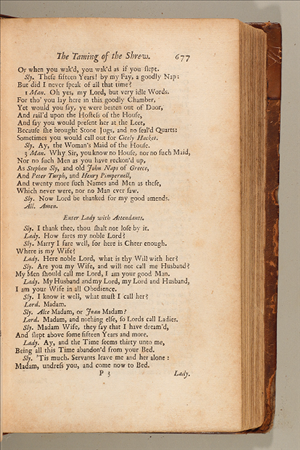 The Taming of the Shrew. 677
Or when you wak'd, you wak'd as if you slept.
Sly. These fifteen Years! by my Fay, a goodly Nap:
But did I never speak of all that time?
1 Man. Oh yes, my Lord, but very idle Words.
For tho' you lay here in this goodly Chamber,
Yet would you say, ye were beaten out of Door,
And rail'd upon the Hostess of the House,
And say you would present her at the Leet,
Because she brought Stone Jugs, and no seal'd Quarts:
Sometimes you would call out for Cicely Hacket.
Sly. Ay, the Woman's Maid of the House.
3 Man. Why Sir, you know no House, nor no such Maid,
Nor no such Men as you have reckon'd up,
As Stephen Sly, and old John Naps of Greece,
And Peter Turph, and Henry Pimpernell,
And twenty more such Names and Men as these,
Which never were, nor no Man ever saw.
Sly. Now Lord be thanked for my good amends.
All. Amen.
Enter Lady with Attendants.
Sly. I thank thee, thou shalt not lose by it.
Lady. How fares my noble Lord?
Sly. Marry I fare well, for here is Cheer enough.
Where is my Wife?
Lady. Here noble Lord, what is thy Will with her?
Sly. Are you my Wife, and will not call me Husband?
My Men should call me Lord, I am your good Man.
Lady. My Husband and my Lord, my Lord and Husband,
I am your Wife in all Obedience.
Sly. I know it well, what must I call her?
Lord. Madam.
Sly. Alce Madam, or Joan Madam?
Lord. Madam, and nothing else, so Lords call Ladies.
Sly. Madam Wife, they say that I have dream'd,
And slept above some fifteen Years and more.
Lady. Ay, and the Time seems thirty unto me,
Being all this Time abandon'd from your Bed.
Sly. 'Tis much. Servants leave me and her alone:
Madam, undress you, and come now to Bed.
P 3 Lady.